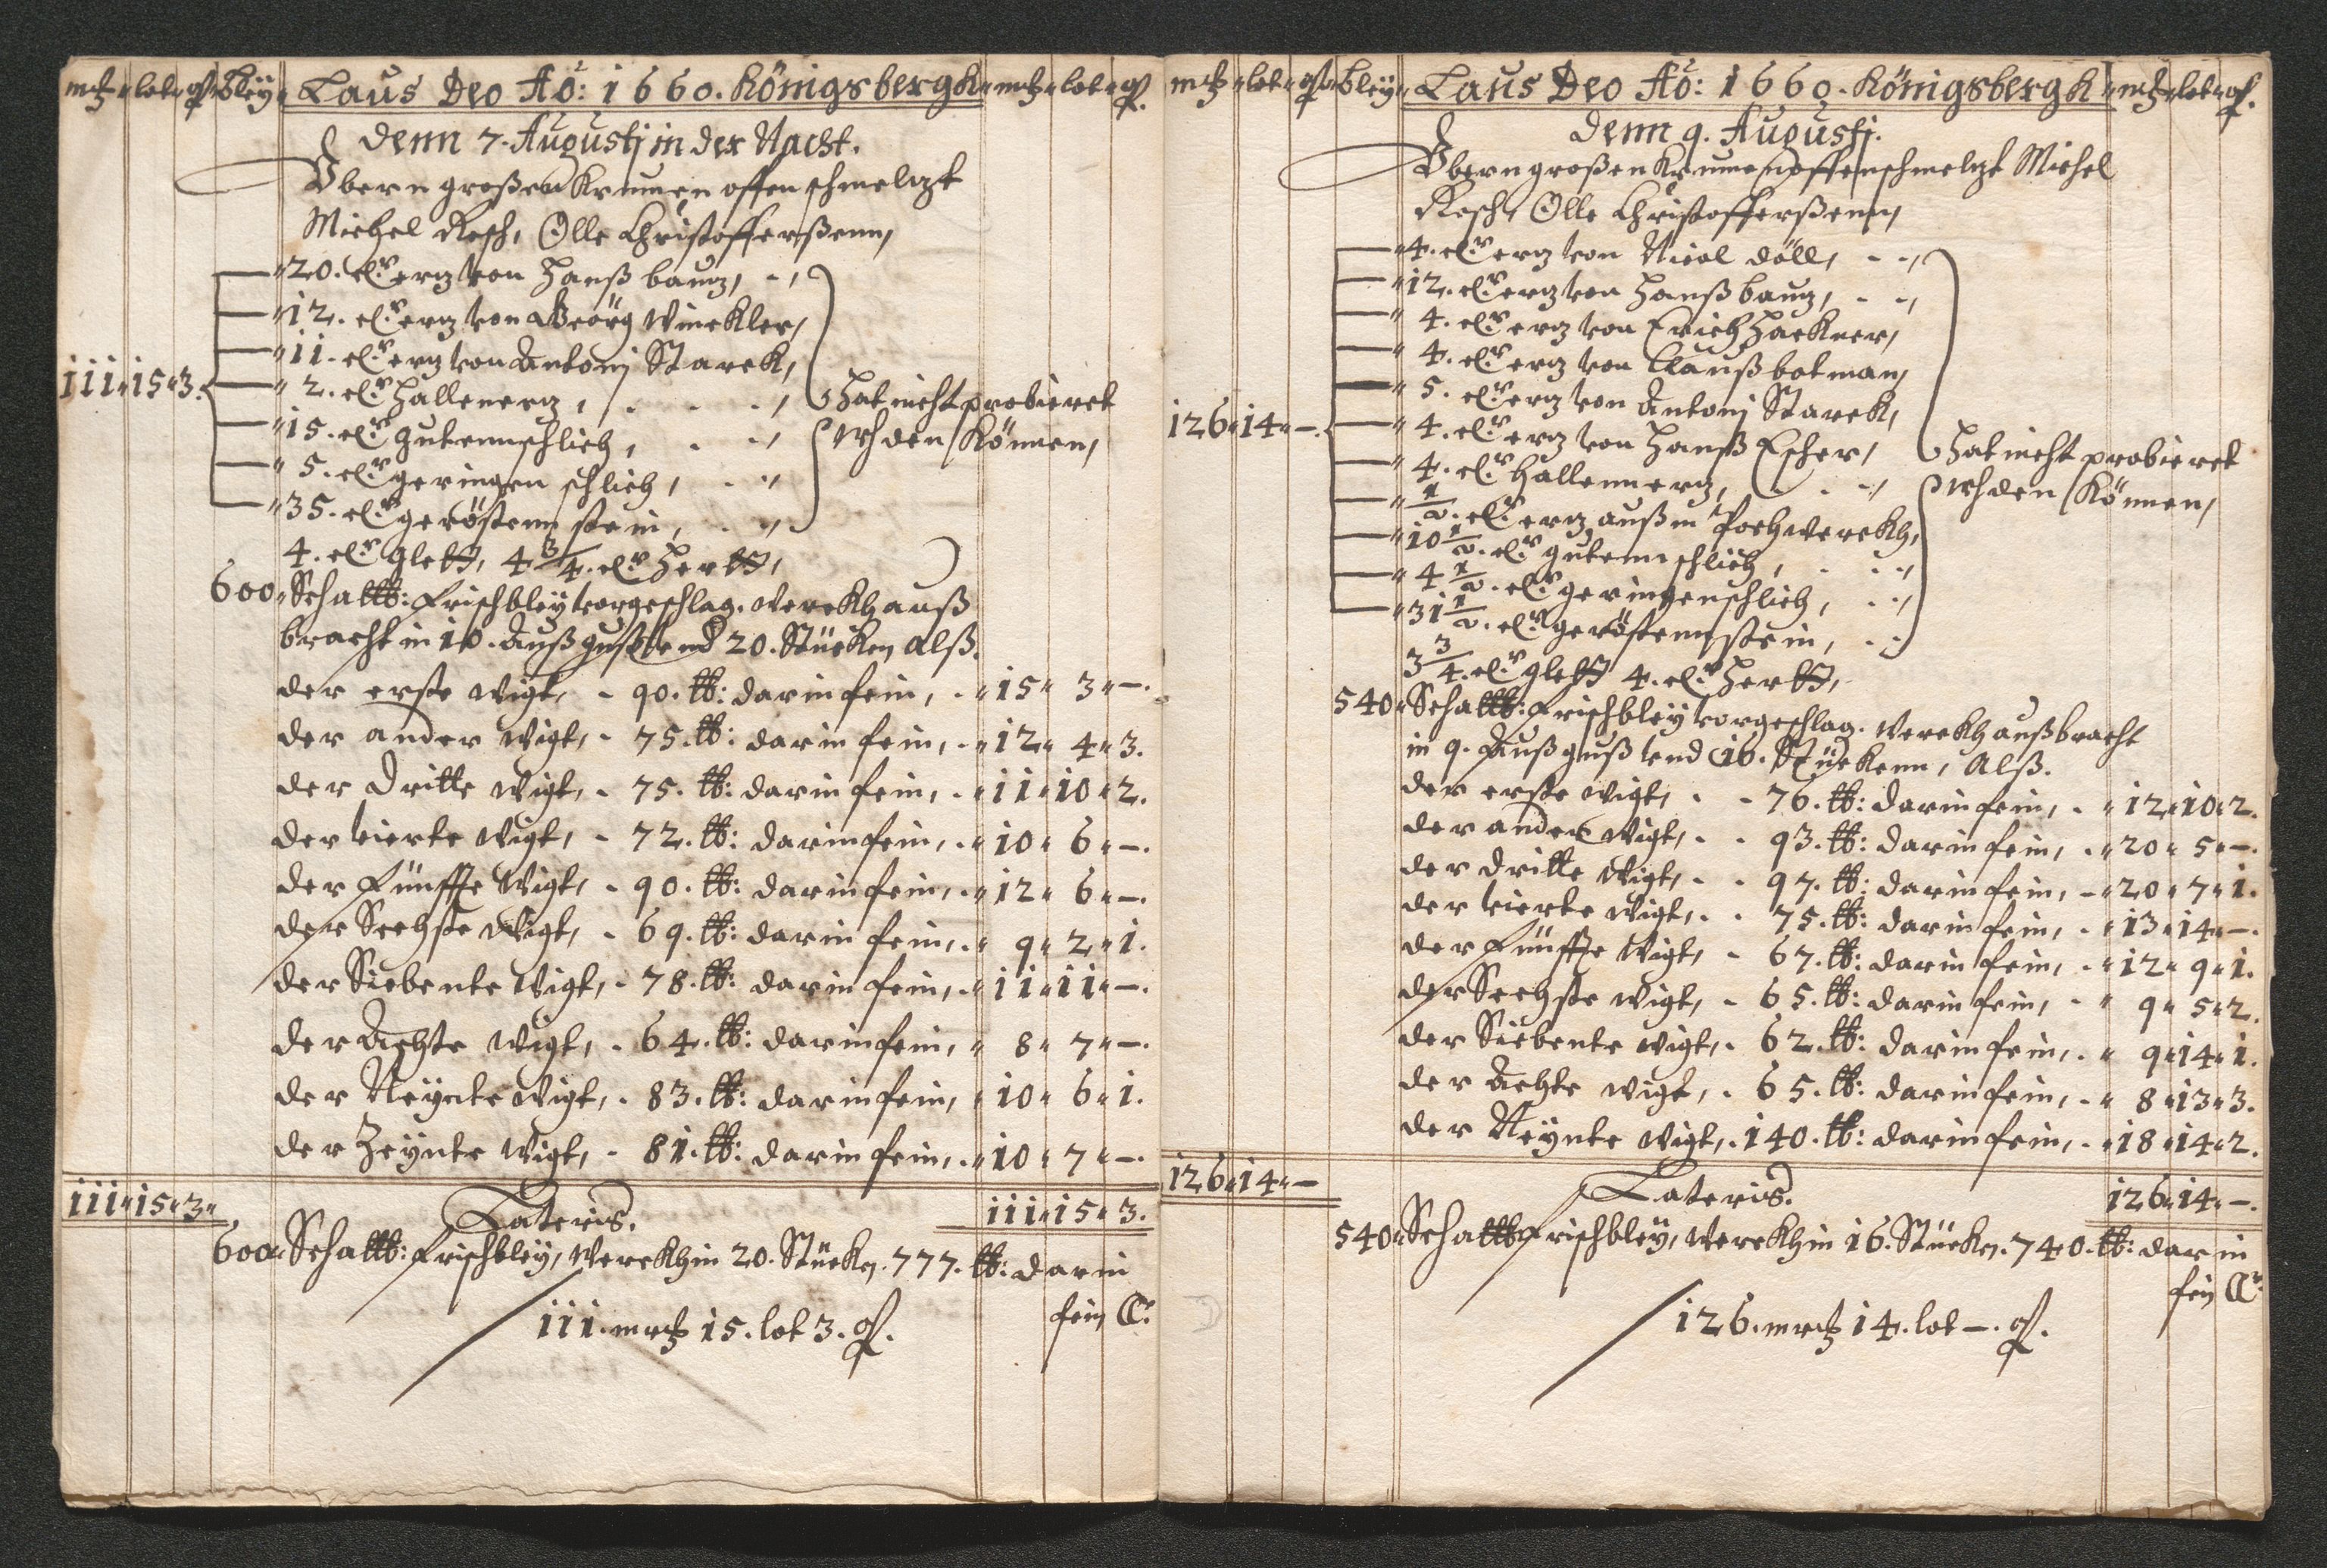 mck lot q Bleÿ Laus Deo Aō: 1660. Königsbergk mck lot q.
Denn 7. Augustj in der Nacht.
Vbern großen Krumen offen schmeltzt
Michel Resch, Olle Christofferßenn,
20. Cr ertz von Hanß bautz,
12. Cr ertz von Geörg Winckler,
11. Cr ertz von Antonj Starck,
111 15 3. 2. Cr Hallenertz, Hat nicht probieret
15. Cr gutennschlich, werden Können,
5. Cr geringen schlich,
35. Cr gerösten stein,
4. Cr glett, 4 3/4. Cr Hertt,
600 Schaltt: Frischbleÿ vorgeschlag. Werckh auß
bracht in 10. Außguß vnd 20. Stücken Alß.
der erste Wigt, 90. tt: darin fein, 15 3 –.
der ander Wigt, 75. tt: darin fein, 12 4 3.
der dritte Wigt, 75. tt: darin fein, 11 10 2.
der vierte Wigt, 72. tt: darin fein, 10 6 –.
der Fünffte Wigt, 90. tt: darin fein, 12 6 –.
der Sechste Wigt, 69. tt: darin fein, 9 2 1.
der Siebente Wigt, 78. tt: darin fein, 11 11 –.
der Achte Wigt, 64. tt: darin fein, 8 7 –.
der Neÿnte Wigt, 83. tt: darin fein, 10 6 1.
der Zeÿnte Wigt, 81. tt: darin fein, 10 7 –.
111 15 3 Lateris. 111 15 3.
600 Schaltt: Frischbleÿ, Werckh in 20. Stück. 777. tt: darin
fein Cr
111. mrck 15. lot 3. q.
mck lot q bleÿ Laus Deo Aō: 1660. Königsbergk mck lot q.
Denn 9. Augustj.
Vbern großen Krumen offen schmeltzt Michel
Resch, Olle Christofferßenn,
4. Cr ertz von Nicol döll,
12. Cr ertz von Hanß bautz,
4. Cr ertz von Erich Hackner,
4. Cr ertz von Clauß botman,
5. Cr ertz von Antonj Starck,
126 14 –. 4. Cr ertz von Hanß Escher, Hat nicht probieret
4. Cr Hallennertz, werden Können,
1/2. Cr ertz außm Pochwerckh,
10 1/2. Cr gutenn schlich,
4 1/2. Cr geringenschlich,
31 1/2. Cr geröstenn stein,
3 3/4. Cr glett 4. Cr Hertt,
540 Schaltt: Frischbleÿ vorgeschlag. Werckh außbracht
in 9. Außguß vnd 16. Stückenn, Alß.
der erste Wigt, 76. tt: darin fein, 12 10 2.
der ander Wigt, 93. tt: darin fein, 20 5 –.
der dritte Wigt, 97. tt: darin fein, 20 7 1.
der vierte Wigt, 75. tt: darin fein, 13 14 –.
der Fünffte Wigt, 67. tt: darin fein, 12 9 1.
der Sechste Wigt, 65. tt: darin fein, 9 5 2.
der Siebente Wigt, 62. tt: darin fein, 9 14 1.
der Achte Wigt, 65. tt: darin fein, 8 13 3.
der Neÿnte Wigt, 140. tt: darin fein, 18 14 2.
126 14 – Lateris. 126 14 –.
540 Schaltt Frischbleÿ, Werckh in 16. Stück. 740. tt: darin
fein Cr
126. mrck 14. lot –. q.